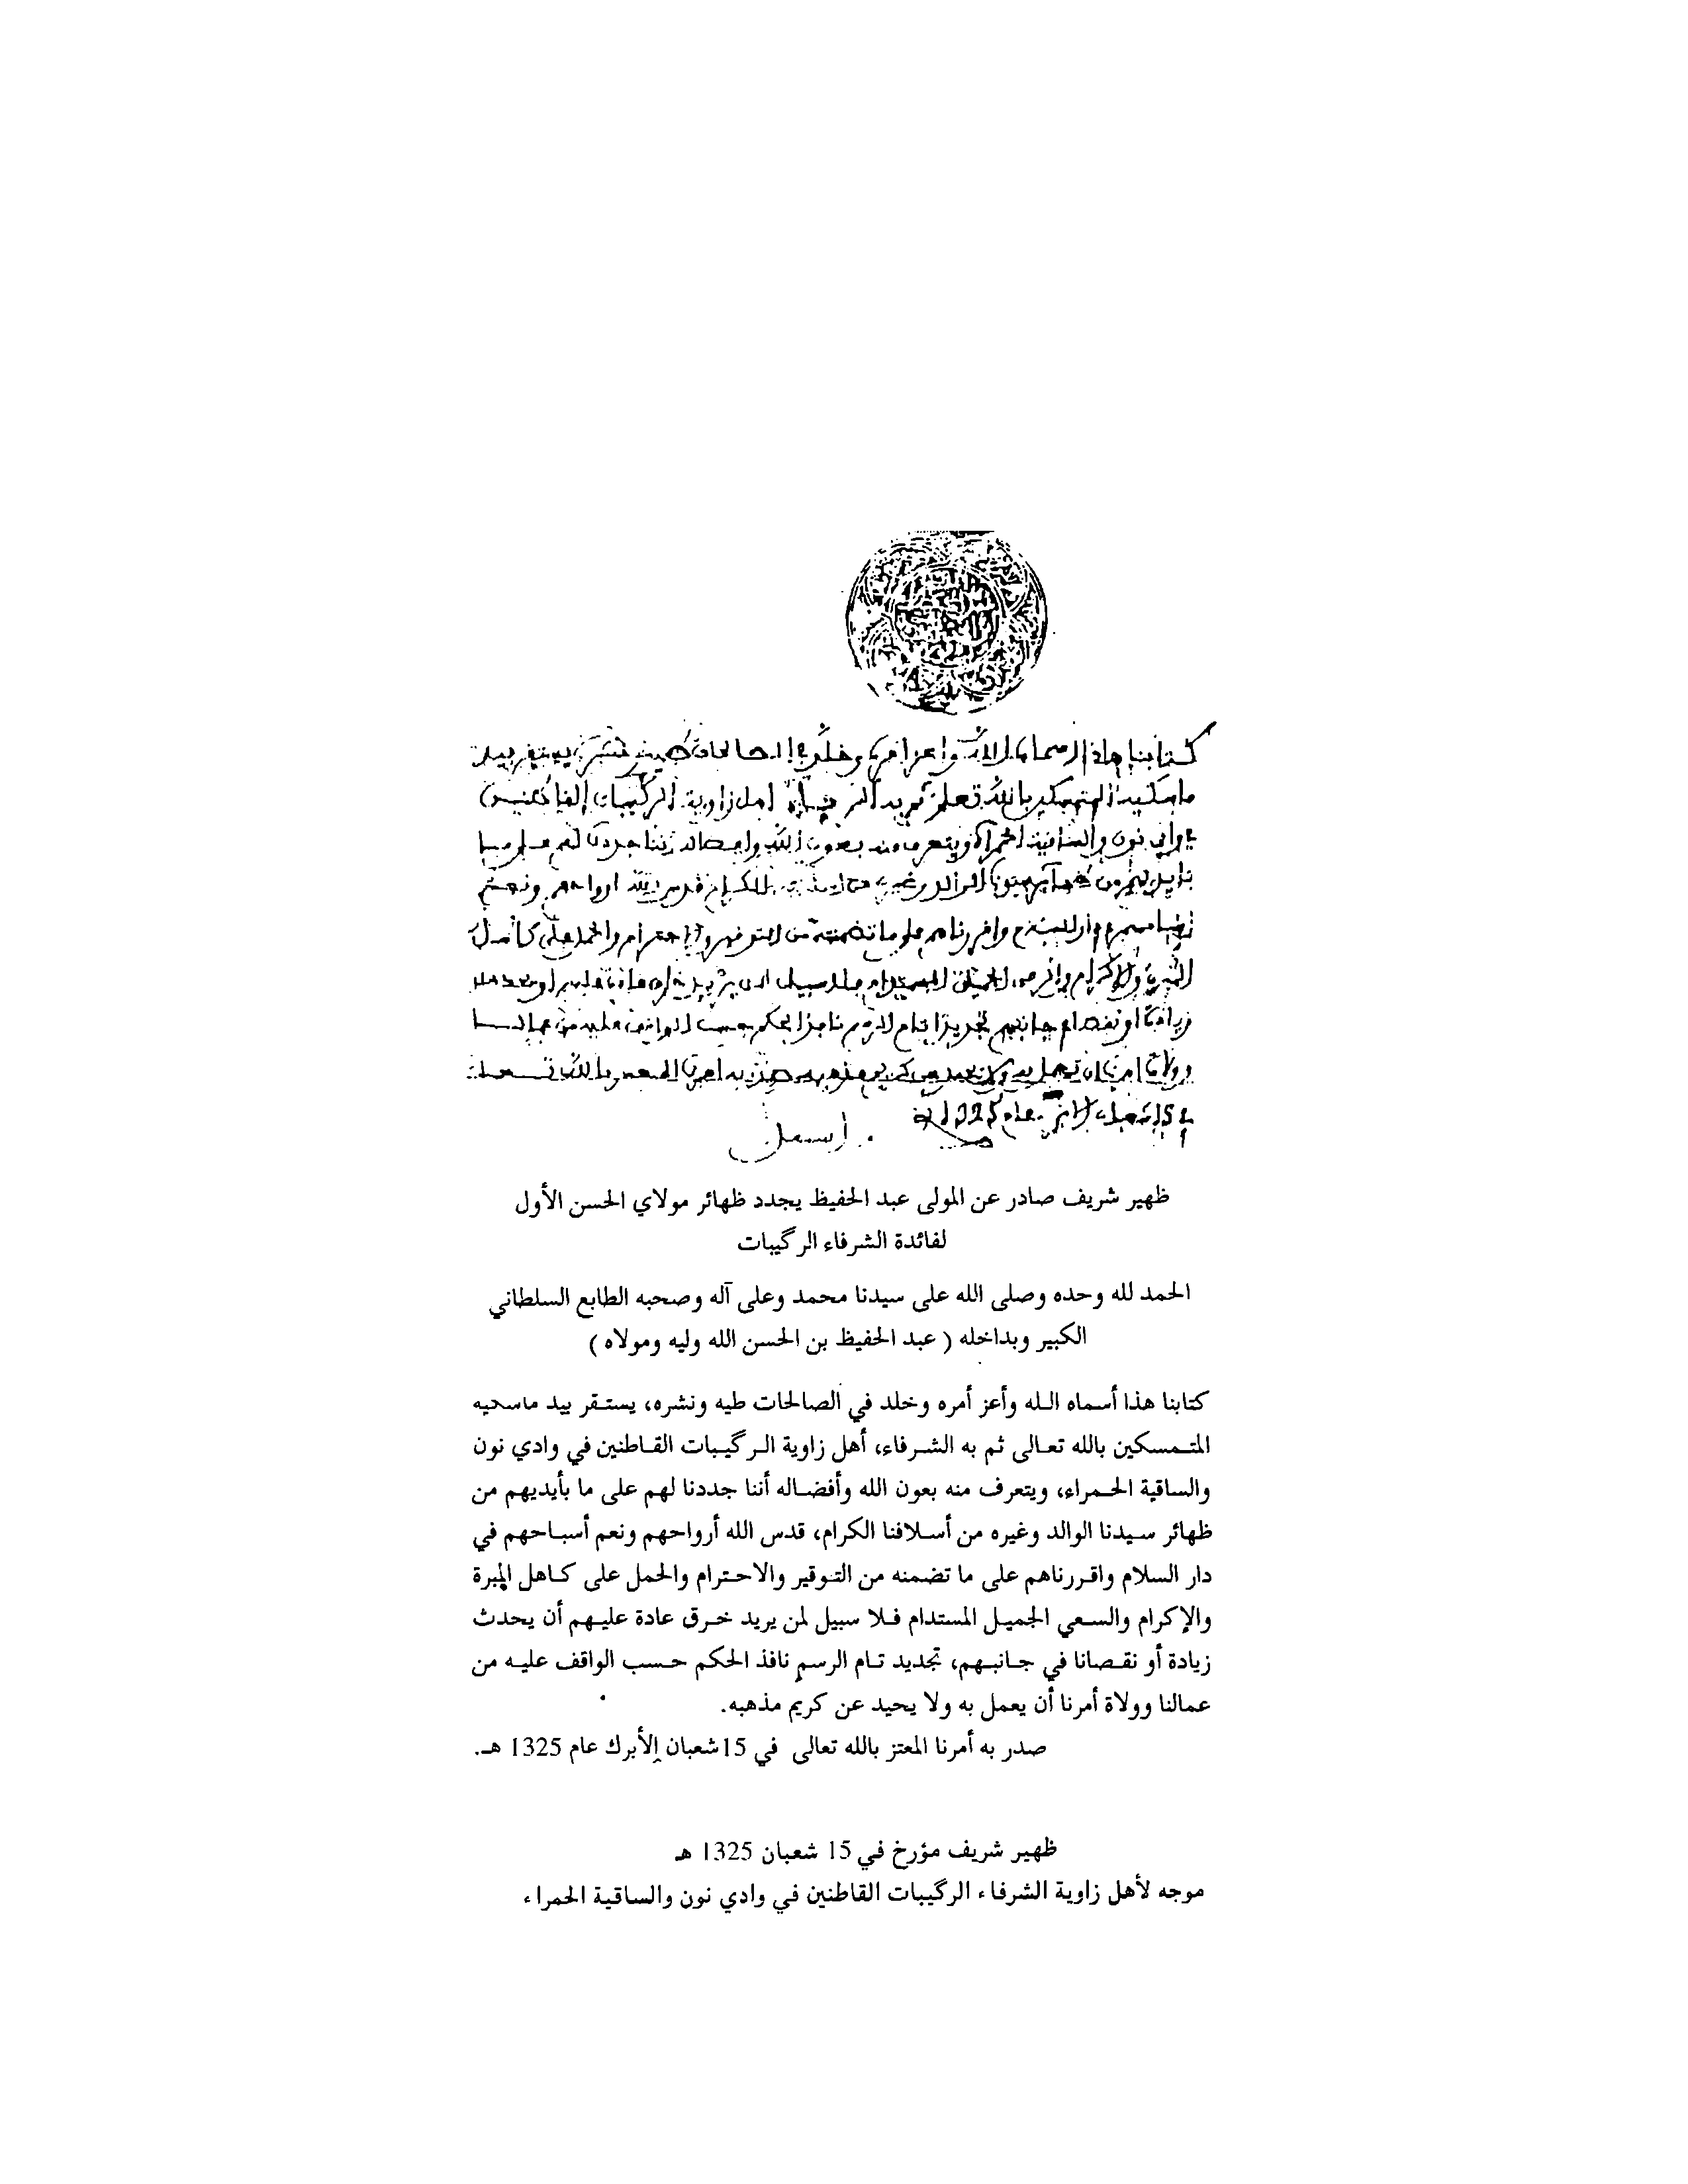 كتابنا هاذا اسماه الله واعز امره وخلد في الصالحات طيه ونشره يستقر بيد
ماسكيه المتمسكين بالله تعلى ثم به الشرفاء اهل زاوية الركيبات القاطنين
وادي نون والساقية الحمراء ويتعرف منه بعون الله وافضاله اننا جددنا لهم على ما
بايديهم من ظهائر سيدنا الوالد وغيره من اسلافنا الكرام قدس الله ارواحهم ونعم
دار السلام واقررناهم على ما تضمنته من التوقير والاحترام والحمل على كاهل
المبرة والاكرام الجميل المستدام فلا سبيل لمن يريد خرق عادة عليهم او يحدث
زيادة او نقصا في جانبهم تجديدا تام الرسم نافذ الحكم حسب الواقف عليه من عمالنا
وولاة امرنا ان يعمل به ولا يحيد عن كريم مذهبه صدر به امرنا المعتز بالله تعلى
في 15 شعبان الابرك عام 1325
ظهير شريف صادر عن المولى عبد الحفيظ يجدد ظهائر مولاي الحسن الأول
لفائدة الشرفاء الرگيبات
الحمد لله وحده وصلى الله على سيدنا محمد وعلى آله وصحبه الطابع السلطاني
الكبير وبداخله ( عبد الحفيظ بن الحسن الله وليه ومولاه )
كتابنا هذا أسماه الله وأعز أمره وخلد في الصالحات طيه ونشره، يستقر بيد ماسكيه
المتمسكين بالله تعالى ثم به الشرفاء، أهل زاوية الرگيبات القاطنين في وادي نون
والساقية الحمراء، ويتعرف منه بعون الله وأفضاله أننا جددنا لهم على ما بأيديهم من
ظهائر سيدنا الوالد وغيره من أسلافنا الكرام، قدس الله أرواحهم ونعم أسباحهم في
دار السلام واقررناهم على ما تضمنه من التوقير والاحترام والحمل على كاهل المبرة
والإكرام والسعي الجميل المستدام فلا سبيل لمن يريد خرق عادة عليهم أن يحدث
زيادة أو نقصانا في جانبهم، تجديد تام الرسم نافذ الحكم حسب الواقف عليه من
عمالنا وولاة أمرنا أن يعمل به ولا يحيد عن كريم مذهبه.
صدر به أمرنا المعتز بالله تعالى في 15شعبان الأبرك عام 1325 هـ.
ظهير شريف مؤرخ في 15 شعبان 1325 هـ
موجه لأهل زاوية الشرفاء الرگيبات القاطنين في وادي نون والساقية الحمراء